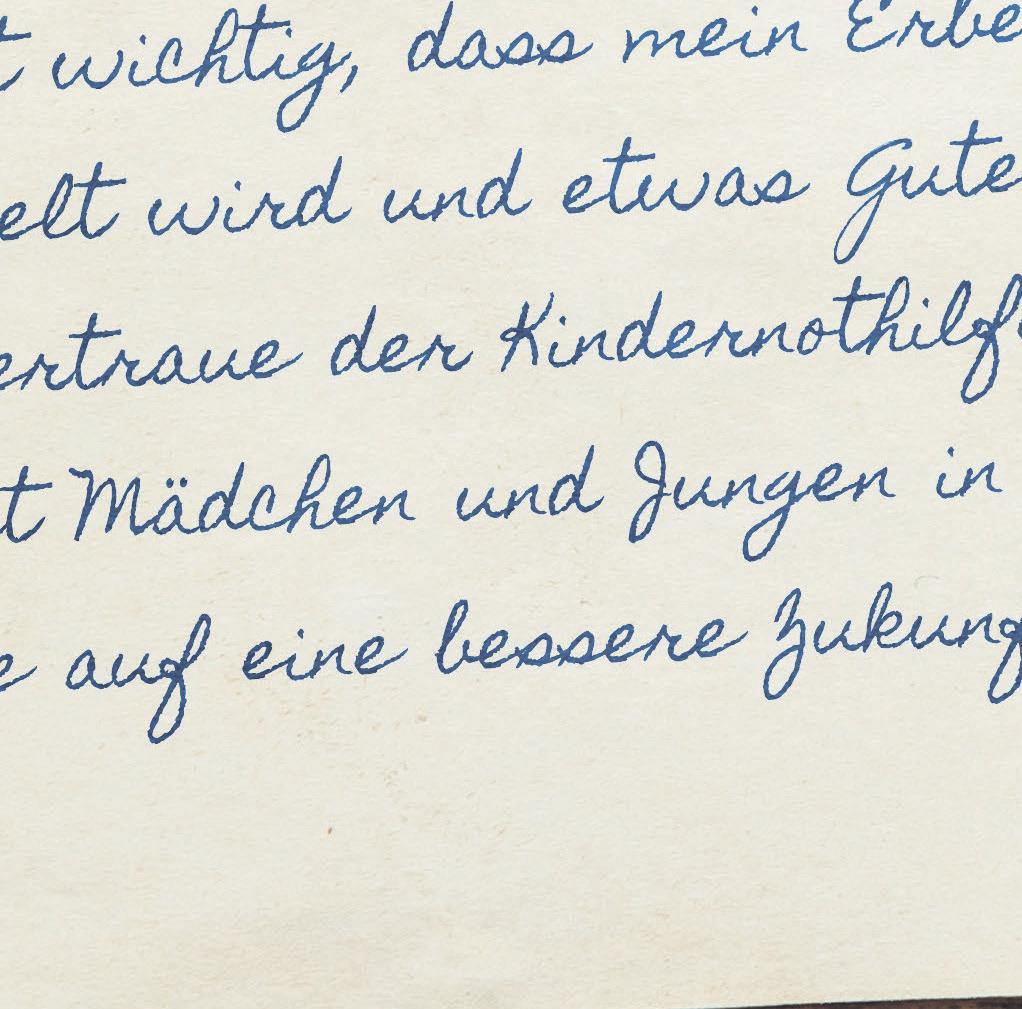 t wichtig, dass mein Erbe
elt wird und etwas Gute
ertraue der Kindernothilf
t Mädchen und Jungen in
e auf eine bessere Zukunf